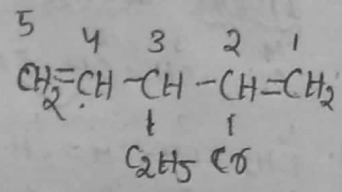 5 4 3 2 1
CH₂=CH-CH-CH=CH₂
C₂H₅ Cl